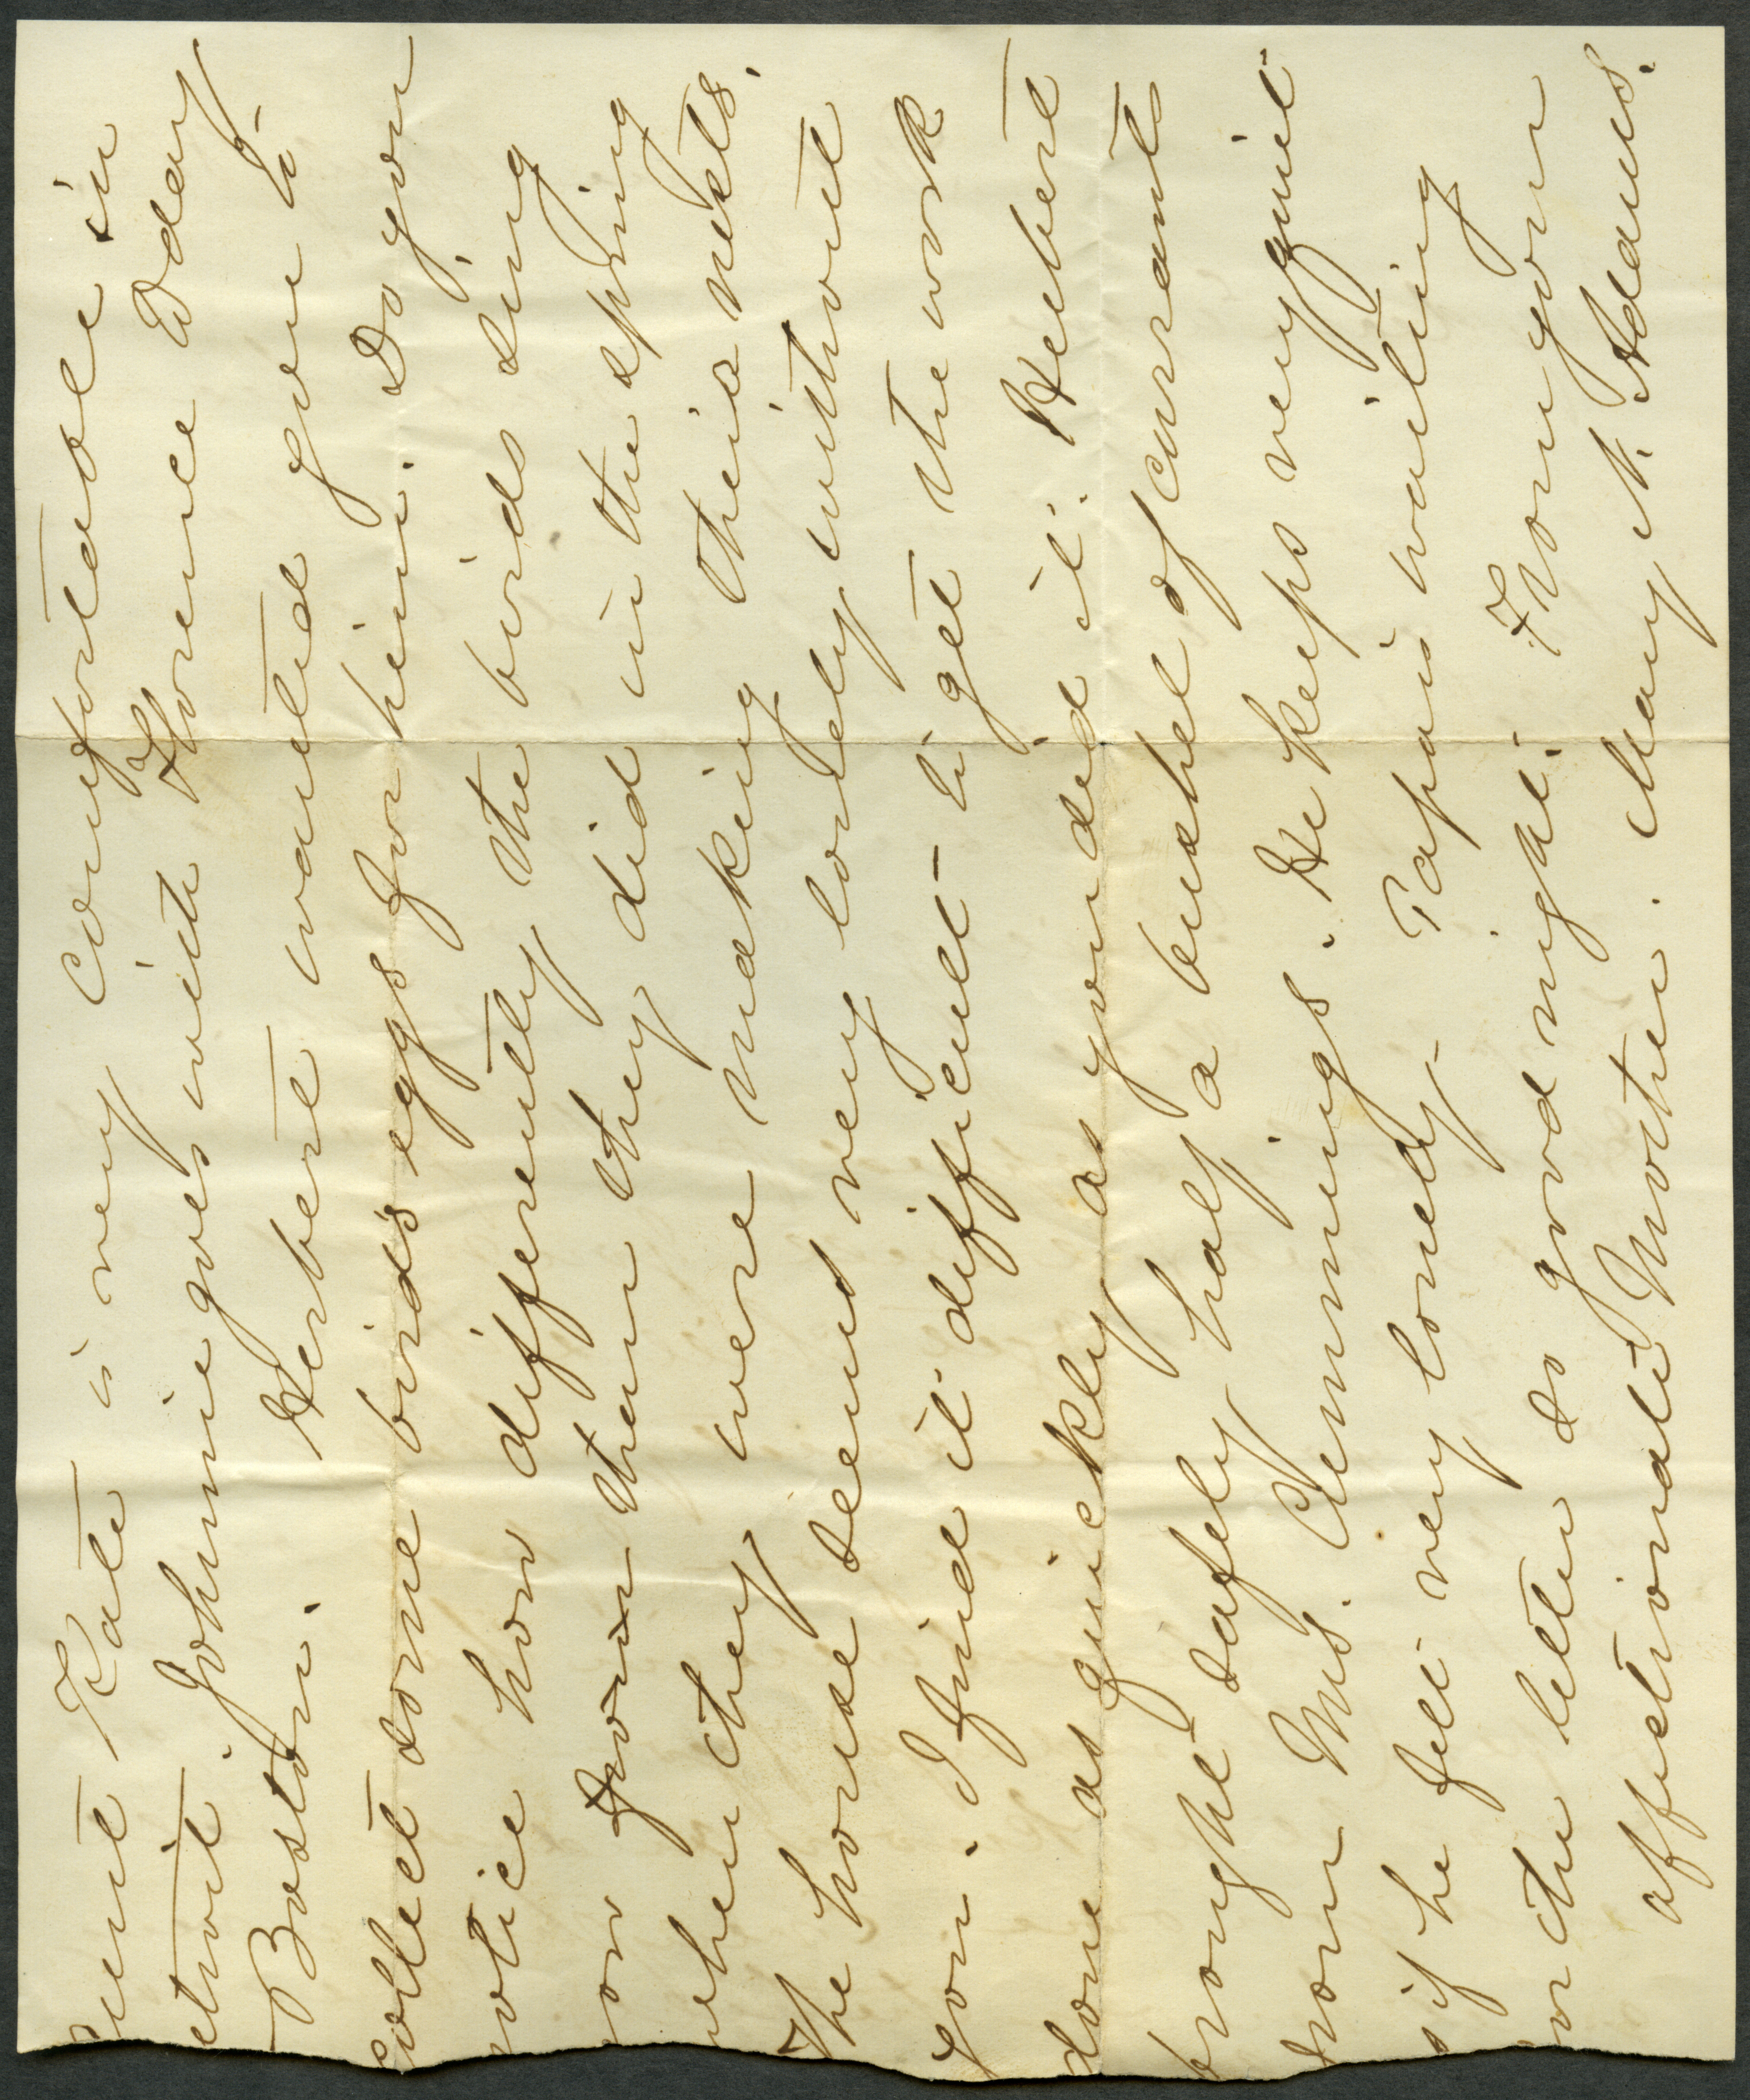 unt Kate is very comfortable in
etroit. Johnnie goes with Florence Oday
Boston. Herbert wanted you to
collect some birds eggs for him. Do you
notice how differently the birds sing
now from then they did in the spring
when they were making their nests.
The house seems very lonely without
you. I find it difficult to get the work
done as quickly as you did it. Herbert
brought safely half a bushel of currants
from Mrs. Cummings. He keeps very quiet
s if he felt very lonely. Papa is waiting
or the letter so good night. From your
affectionate Mother. Mary A. Adams.